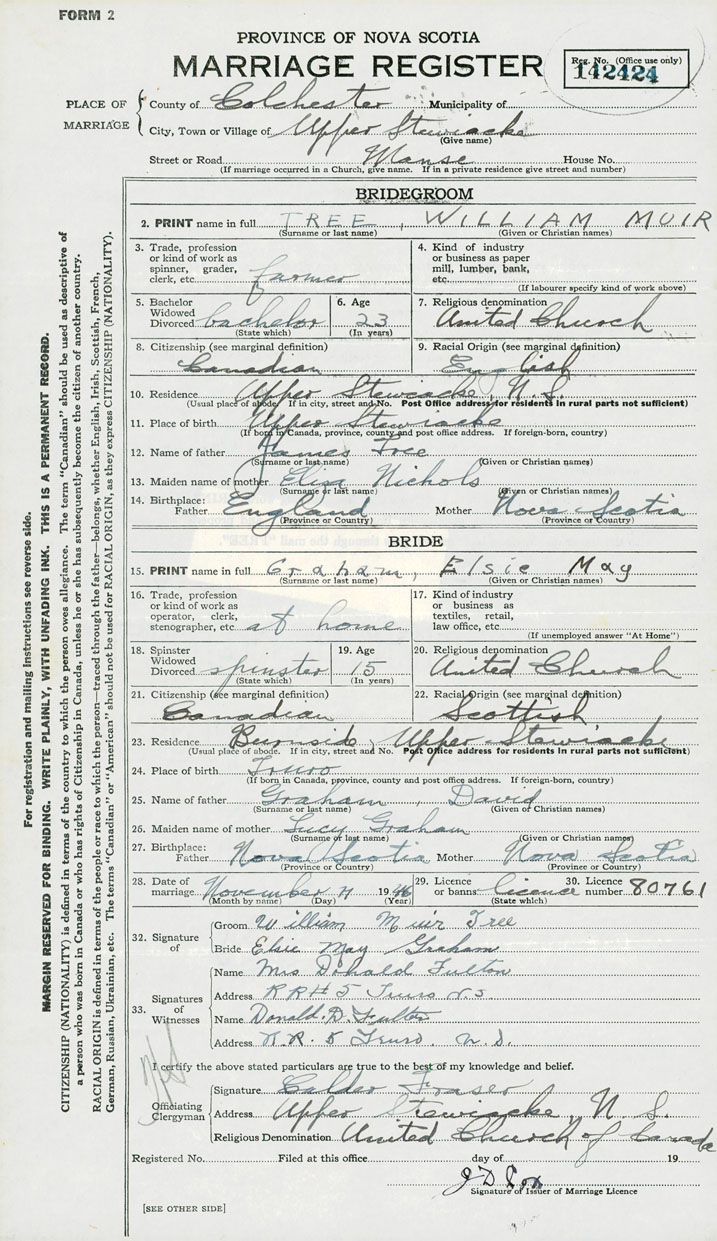 FORM 2
PROVINCE OF NOVA SCOTIA
MARRIAGE REGISTER
Reg. No. (Office use only)
142424
PLACE OF MARRIAGE
County of Colchester Municipality of
City, Town or Village of Upper Stewiacke
(Give name)
Street or Road Manse House No.
(If marriage occurred in a Church, give name. If in a private residence give street and number)
BRIDEGROOM
2. PRINT name in full TREE, WILLIAM MUIR
(Surname or last name) (Given or Christian names)
3. Trade, profession or kind of work as spinner, grader, clerk, etc. farmer
4. Kind of industry or business as paper mill, lumber, bank, etc.
(If labourer specify kind of work above)
5. Bachelor Widowed Divorced bachelor
(State which)
6. Age 23
(In years)
7. Religious denomination
United Church
8. Citizenship (see marginal definition)
Canadian
9. Racial Origin (see marginal definition)
English
10. Residence Upper Stewiacke, N.S.
(Usual place of abode. If in city, street and No. Post Office address for residents in rural parts not sufficient)
11. Place of birth Upper Stewiacke
(If born in Canada, province, county and post office address. If foreign-born, country)
12. Name of father James Tree
(Surname or last name) (Given or Christian names)
13. Maiden name of mother Eliza Nichols
(Surname or last name) (Given or Christian names)
14. Birthplace: Father England Mother Nova Scotia
(Province or Country) (Province or Country)
BRIDE
15. PRINT name in full Graham, Elsie May
(Surname or last name) (Given or Christian names)
16. Trade, profession or kind of work as operator, clerk, stenographer, etc. at home
17. Kind of industry or business as textiles, retail, law office, etc.
(If unemployed answer "At Home")
18. Spinster Widowed Divorced spinster
(State which)
19. Age 15
(In years)
20. Religious denomination
United Church
21. Citizenship (see marginal definition)
Canadian
22. Racial Origin (see marginal definition)
Scottish
23. Residence Burnside, Upper Stewiacke
(Usual place of abode. If in city, street and No. Post Office address for residents in rural parts not sufficient)
24. Place of birth Truro
(If born in Canada, province, county and post office address. If foreign-born, country)
25. Name of father Graham, David
(Surname or last name) (Given or Christian names)
26. Maiden name of mother Lucy Graham
(Surname or last name) (Given or Christian names)
27. Birthplace: Father Nova Scotia Mother Nova Scotia
(Province or Country) (Province or Country)
28. Date of marriage November 4 1946
(Month by name) (Day) (Year)
29. Licence or banns licence
(State which)
30. Licence number 80761
32. Signature of
Groom William Muir Tree
Bride Elsie May Graham
33. Signatures of Witnesses
Name Mrs Donald Fulton
Address RR# 5 Truro N.S
Name Donald. D. Fulton
Address R.R. 5 Truro, N.S.
I certify the above stated particulars are true to the best of my knowledge and belief.
Officiating Clergyman
Signature Calder Fraser
Address Upper Stewiacke, N.S.
Religious Denomination United Church of Canada
Registered No. Filed at this office day of 19
Signature of Issuer of Marriage Licence
[SEE OTHER SIDE]
For registration and mailing instructions see reverse side.
MARGIN RESERVED FOR BINDING. WRITE PLAINLY, WITH UNFADING INK. THIS IS A PERMANENT RECORD.
CITIZENSHIP (NATIONALITY) is defined in terms of the country to which the person owes allegiance. The term "Canadian" should be used as descriptive of
a person who was born in Canada or who has rights of Citizenship in Canada, unless he or she has subsequently become the citizen of another country.
RACIAL ORIGIN is defined in terms of the people or race to which the person—traced through the father—belongs, whether English, Irish, Scottish, French,
German, Russian, Ukrainian, etc. The terms "Canadian" or "American" should not be used for RACIAL ORIGIN, as they express CITIZENSHIP (NATIONALITY).